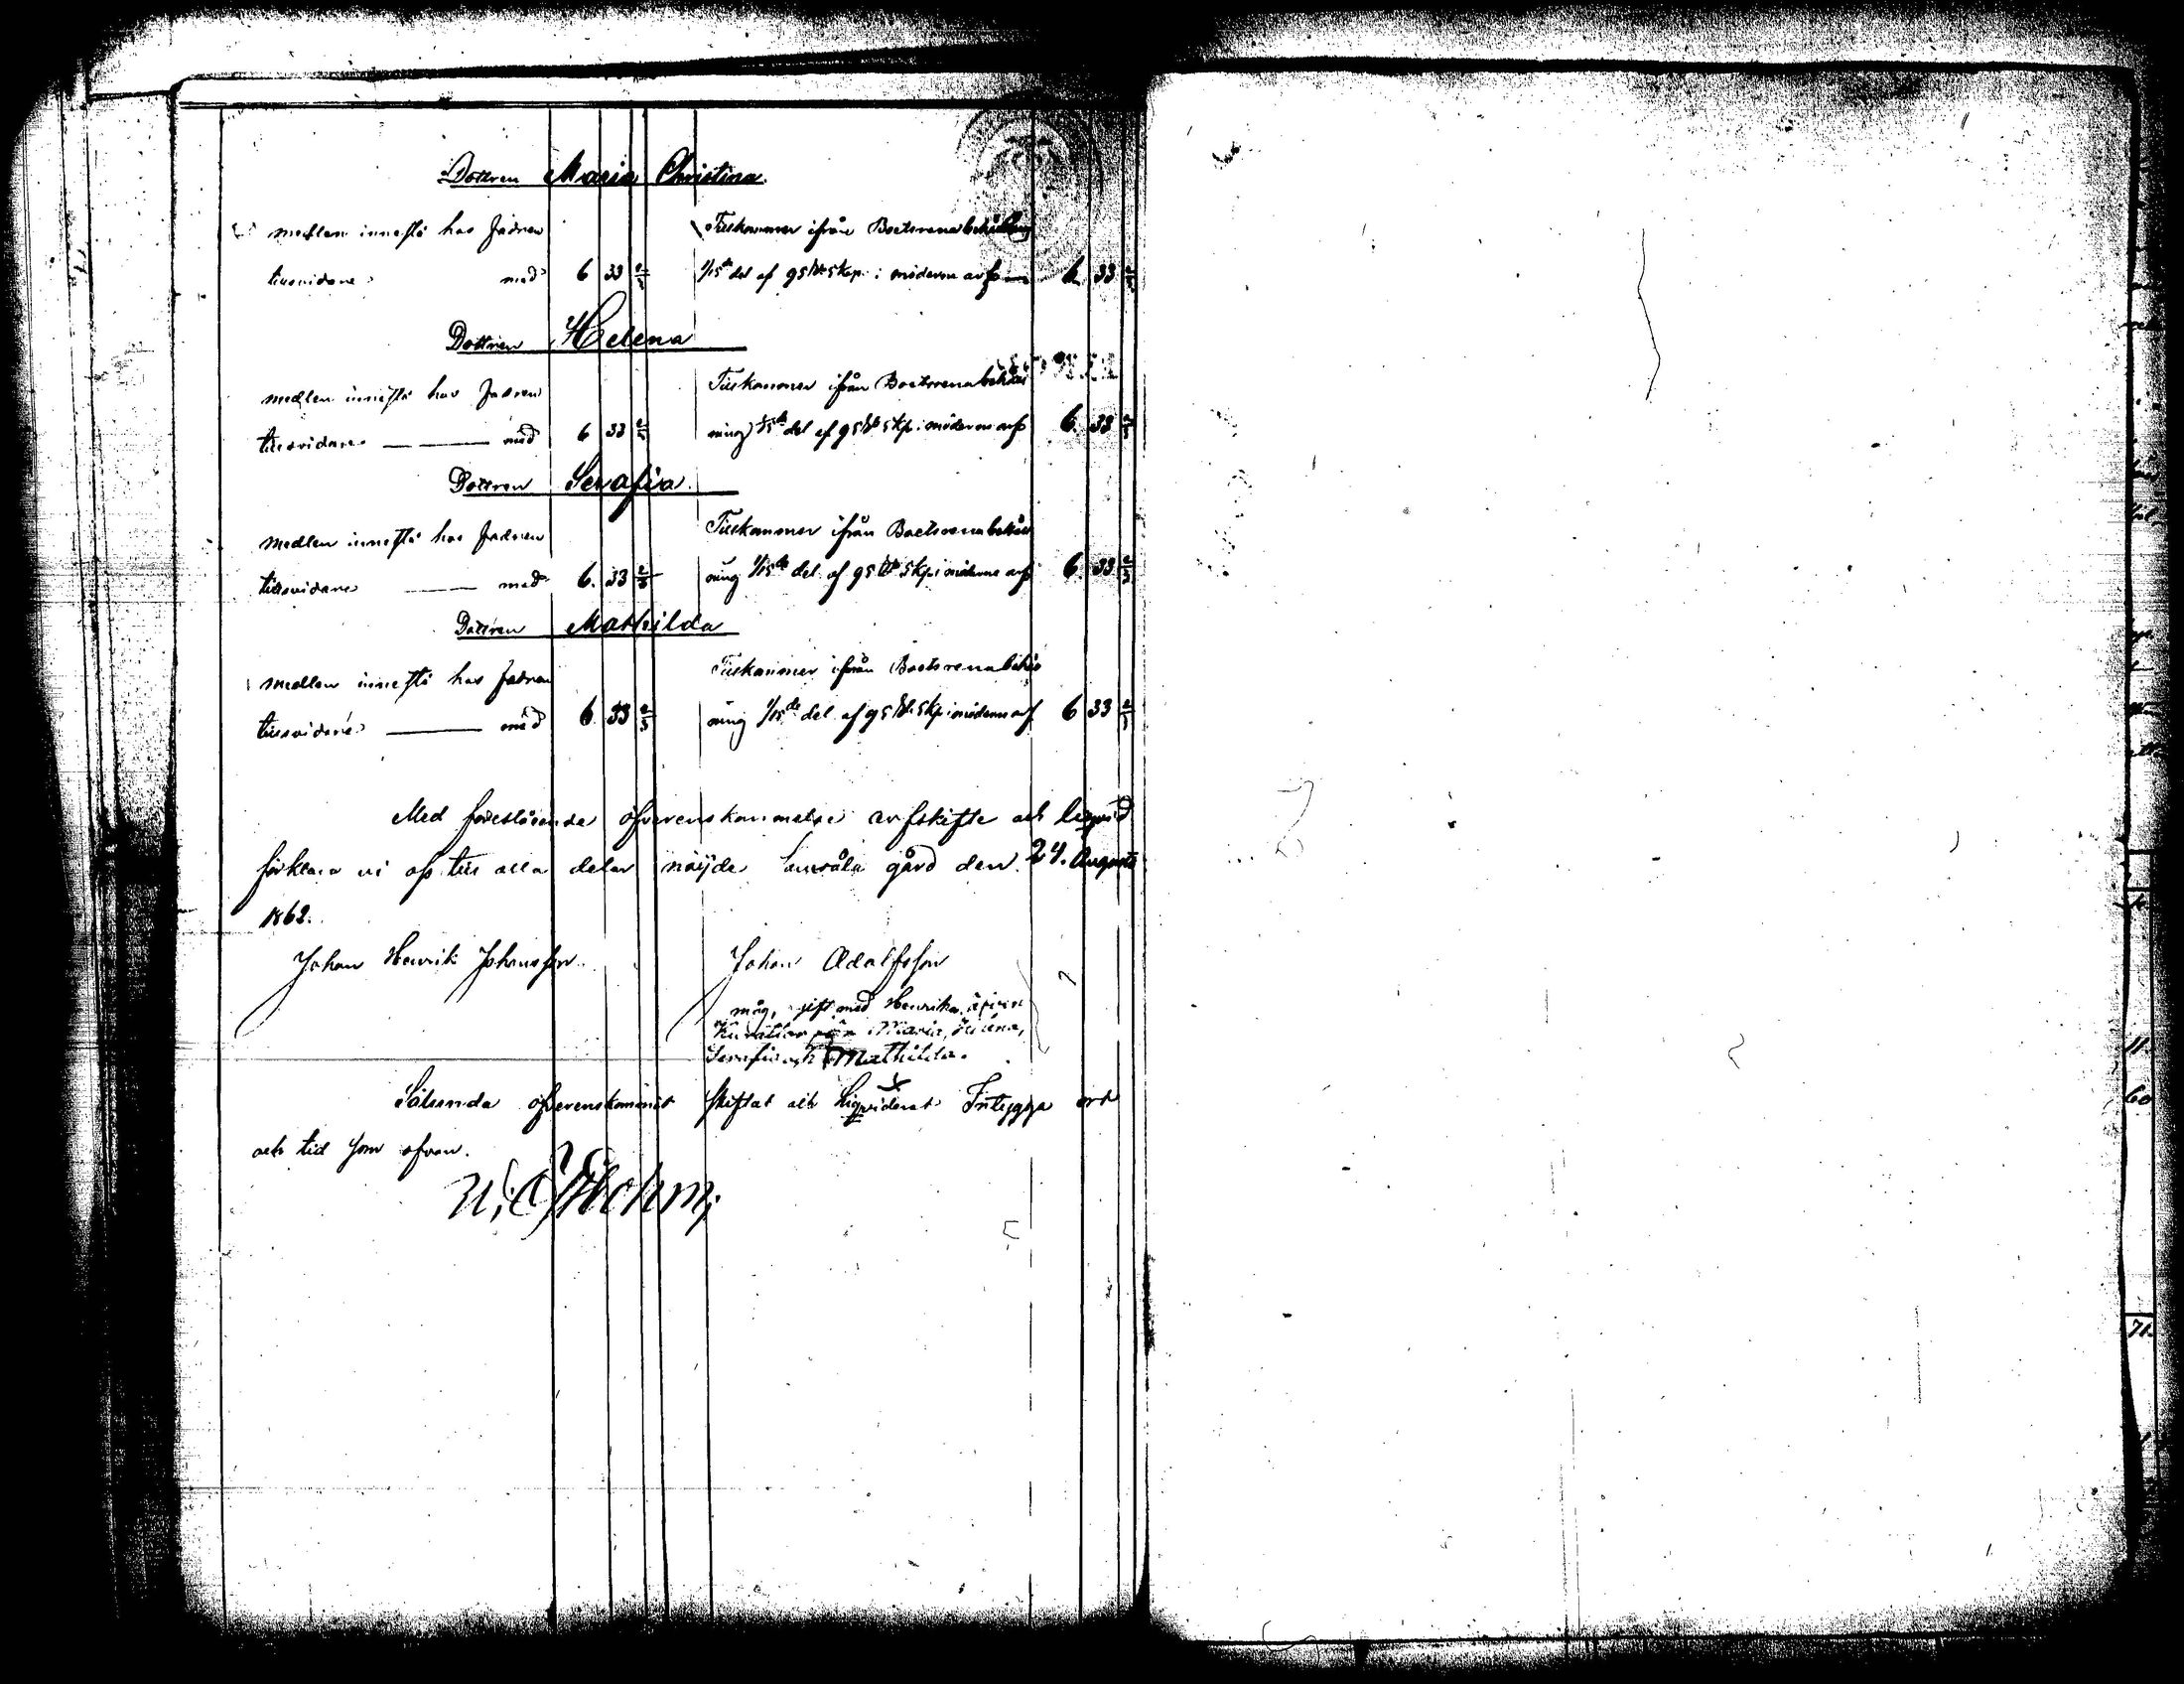 Dottren Maria Christina.
medlen innestå hos fadren
tillsvidare med 6 33 2/3
Tillkommer ifrån Boets rena behållning
1/15de del af 95 Rb 5 Kp. i möderne arf 6. 33 2/3
Dottren Helena
medlen innestå hos fadren
tillsvidare med 6 33 2/3
Tillkommer ifrån Boets rena behåll
ning 1/15de del af 95 Rb 5 Kp. i möderne arf 6. 33 2/3
Dottren Serafia.
medlen innestå hos fadren
tillsvidare med 6. 33 2/3
Tillkommer ifrån Boets rena behåll
ning 1/15de del af 95 Rb 5 Kp i möderne arf 6. 33 2/3
Dottren Mathilda
medlen innestå hos fadren
tillsvidare med 6. 33 2/3
Tillkommer ifrån Boets rena behåll
ning 1/15de del af 95 Rb. 5 Kp. i möderne arf 6 33 2/3
Med förestående öfverenskommelse arfskifte och liqvid
förklara vi oss till alla delar nöjde gård den 24. Augusti
1862.
Johan Henrik Johansson.
Johan Adolfsson
måg, gift med Henrika, äfven
Kurator för Maria, Helena,
Serafia och Mathilda.
Sålunda öfverenskommit skiftat och Liqviderat Intygga ort
och tid som ofvan.